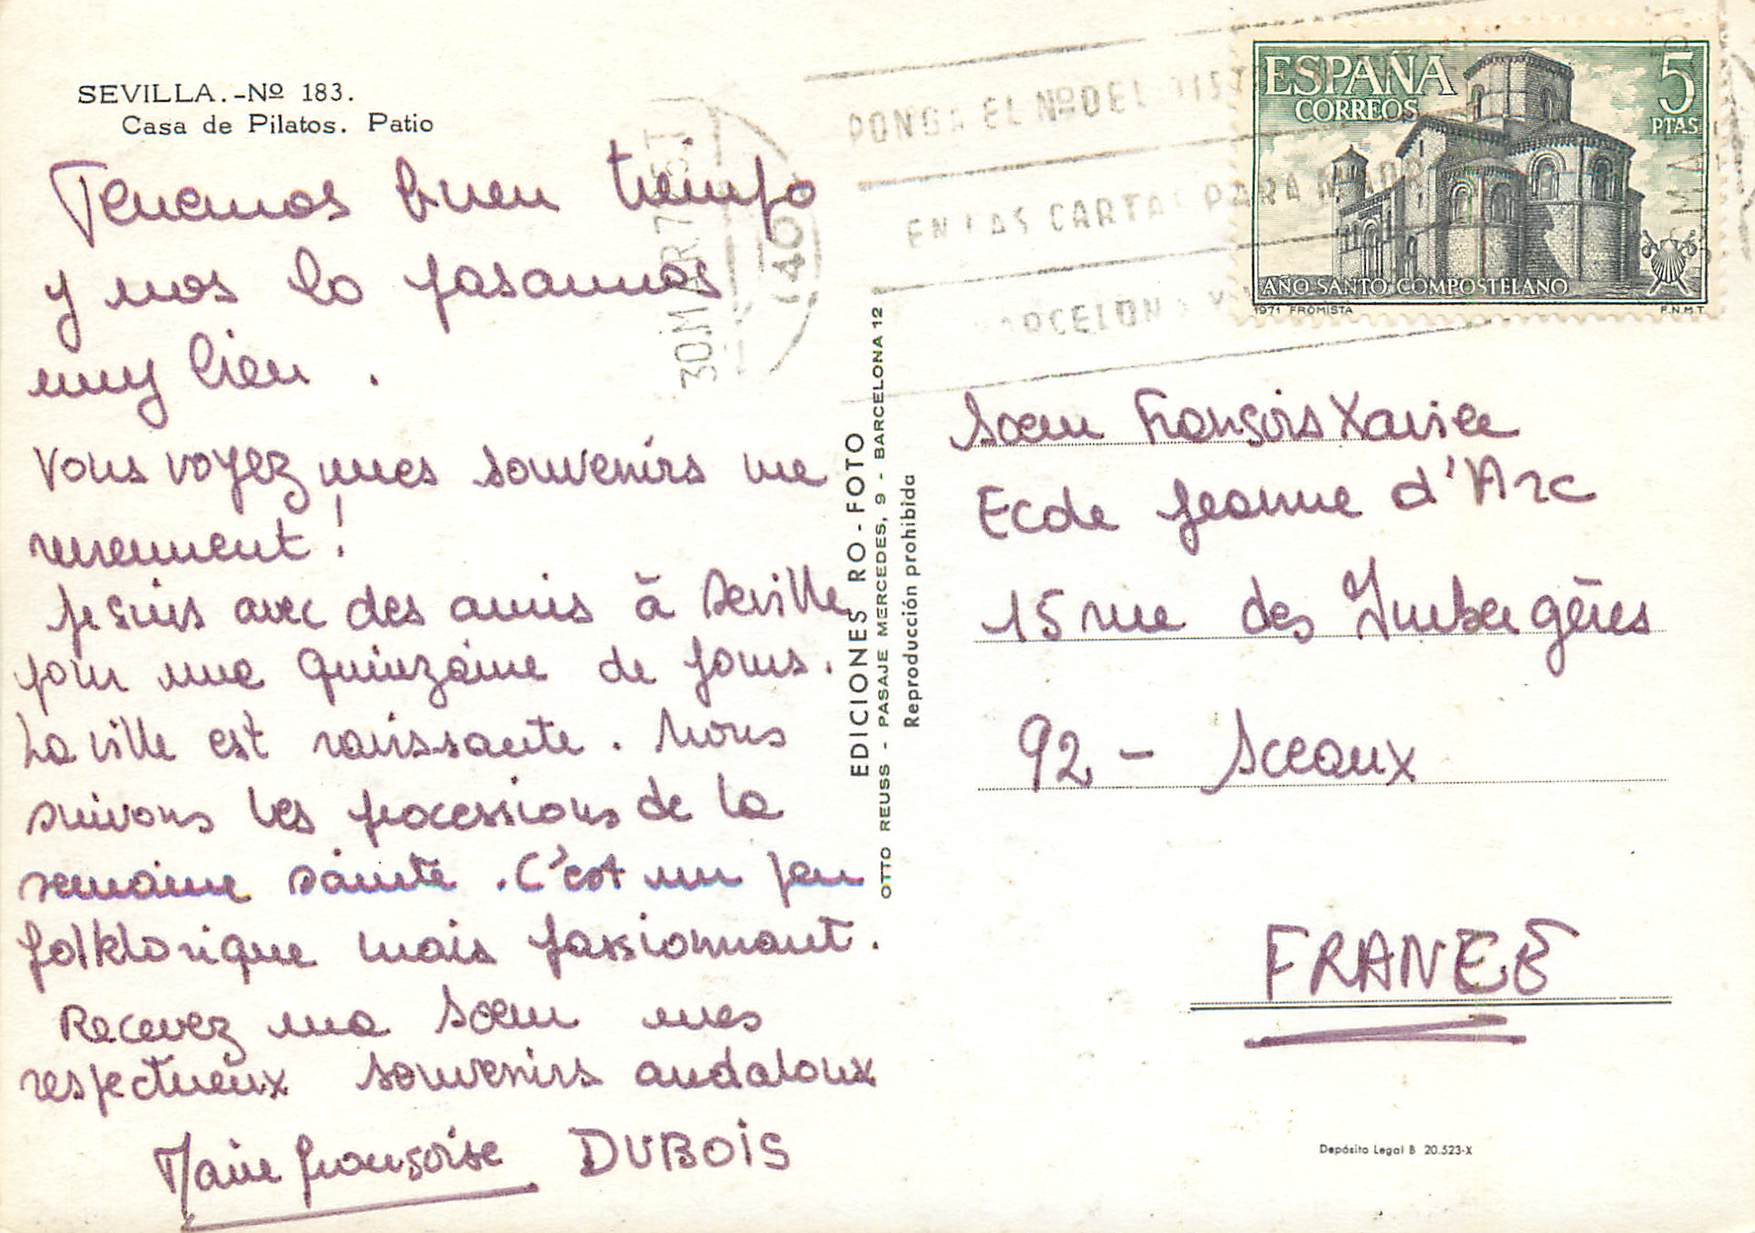 SEVILLA.-Nº 183.
Casa de Pilatos. Patio
Tenemos buen tiempo
y nos lo pasamos
muy bien.
Vous voyez mes souvenirs me
reviennent!
Je suis avec des amis à Seville
pour une quinzaine de jours.
La ville est ravissante. Nous
suivons les processions de la
semaine sainte. C'est un peu
folklorique mais passionnant.
Recevez ma Soeur mes
respectueux souvenirs andaloux
Marie françoise DUBOIS
EDICIONES RO-FOTO
OTTO REUSS - PASAJE MERCEDES, 9 - BARCELONA 12
Reproducción prohibida
PONGA EL Nº DEL
EN LAS CARTAS PARA
BARCELONA
30 MAR 7
(40
ESPAÑA
CORREOS
5
PTAS
AÑO SANTO COMPOSTELANO
1971 FROMISTA
F.N.M.T
Soeur François Xavier
Ecole Jeanne d'Arc
15 rue des Imbergères
92 - Sceaux
FRANCE
Depósito Legal B 20.523-X